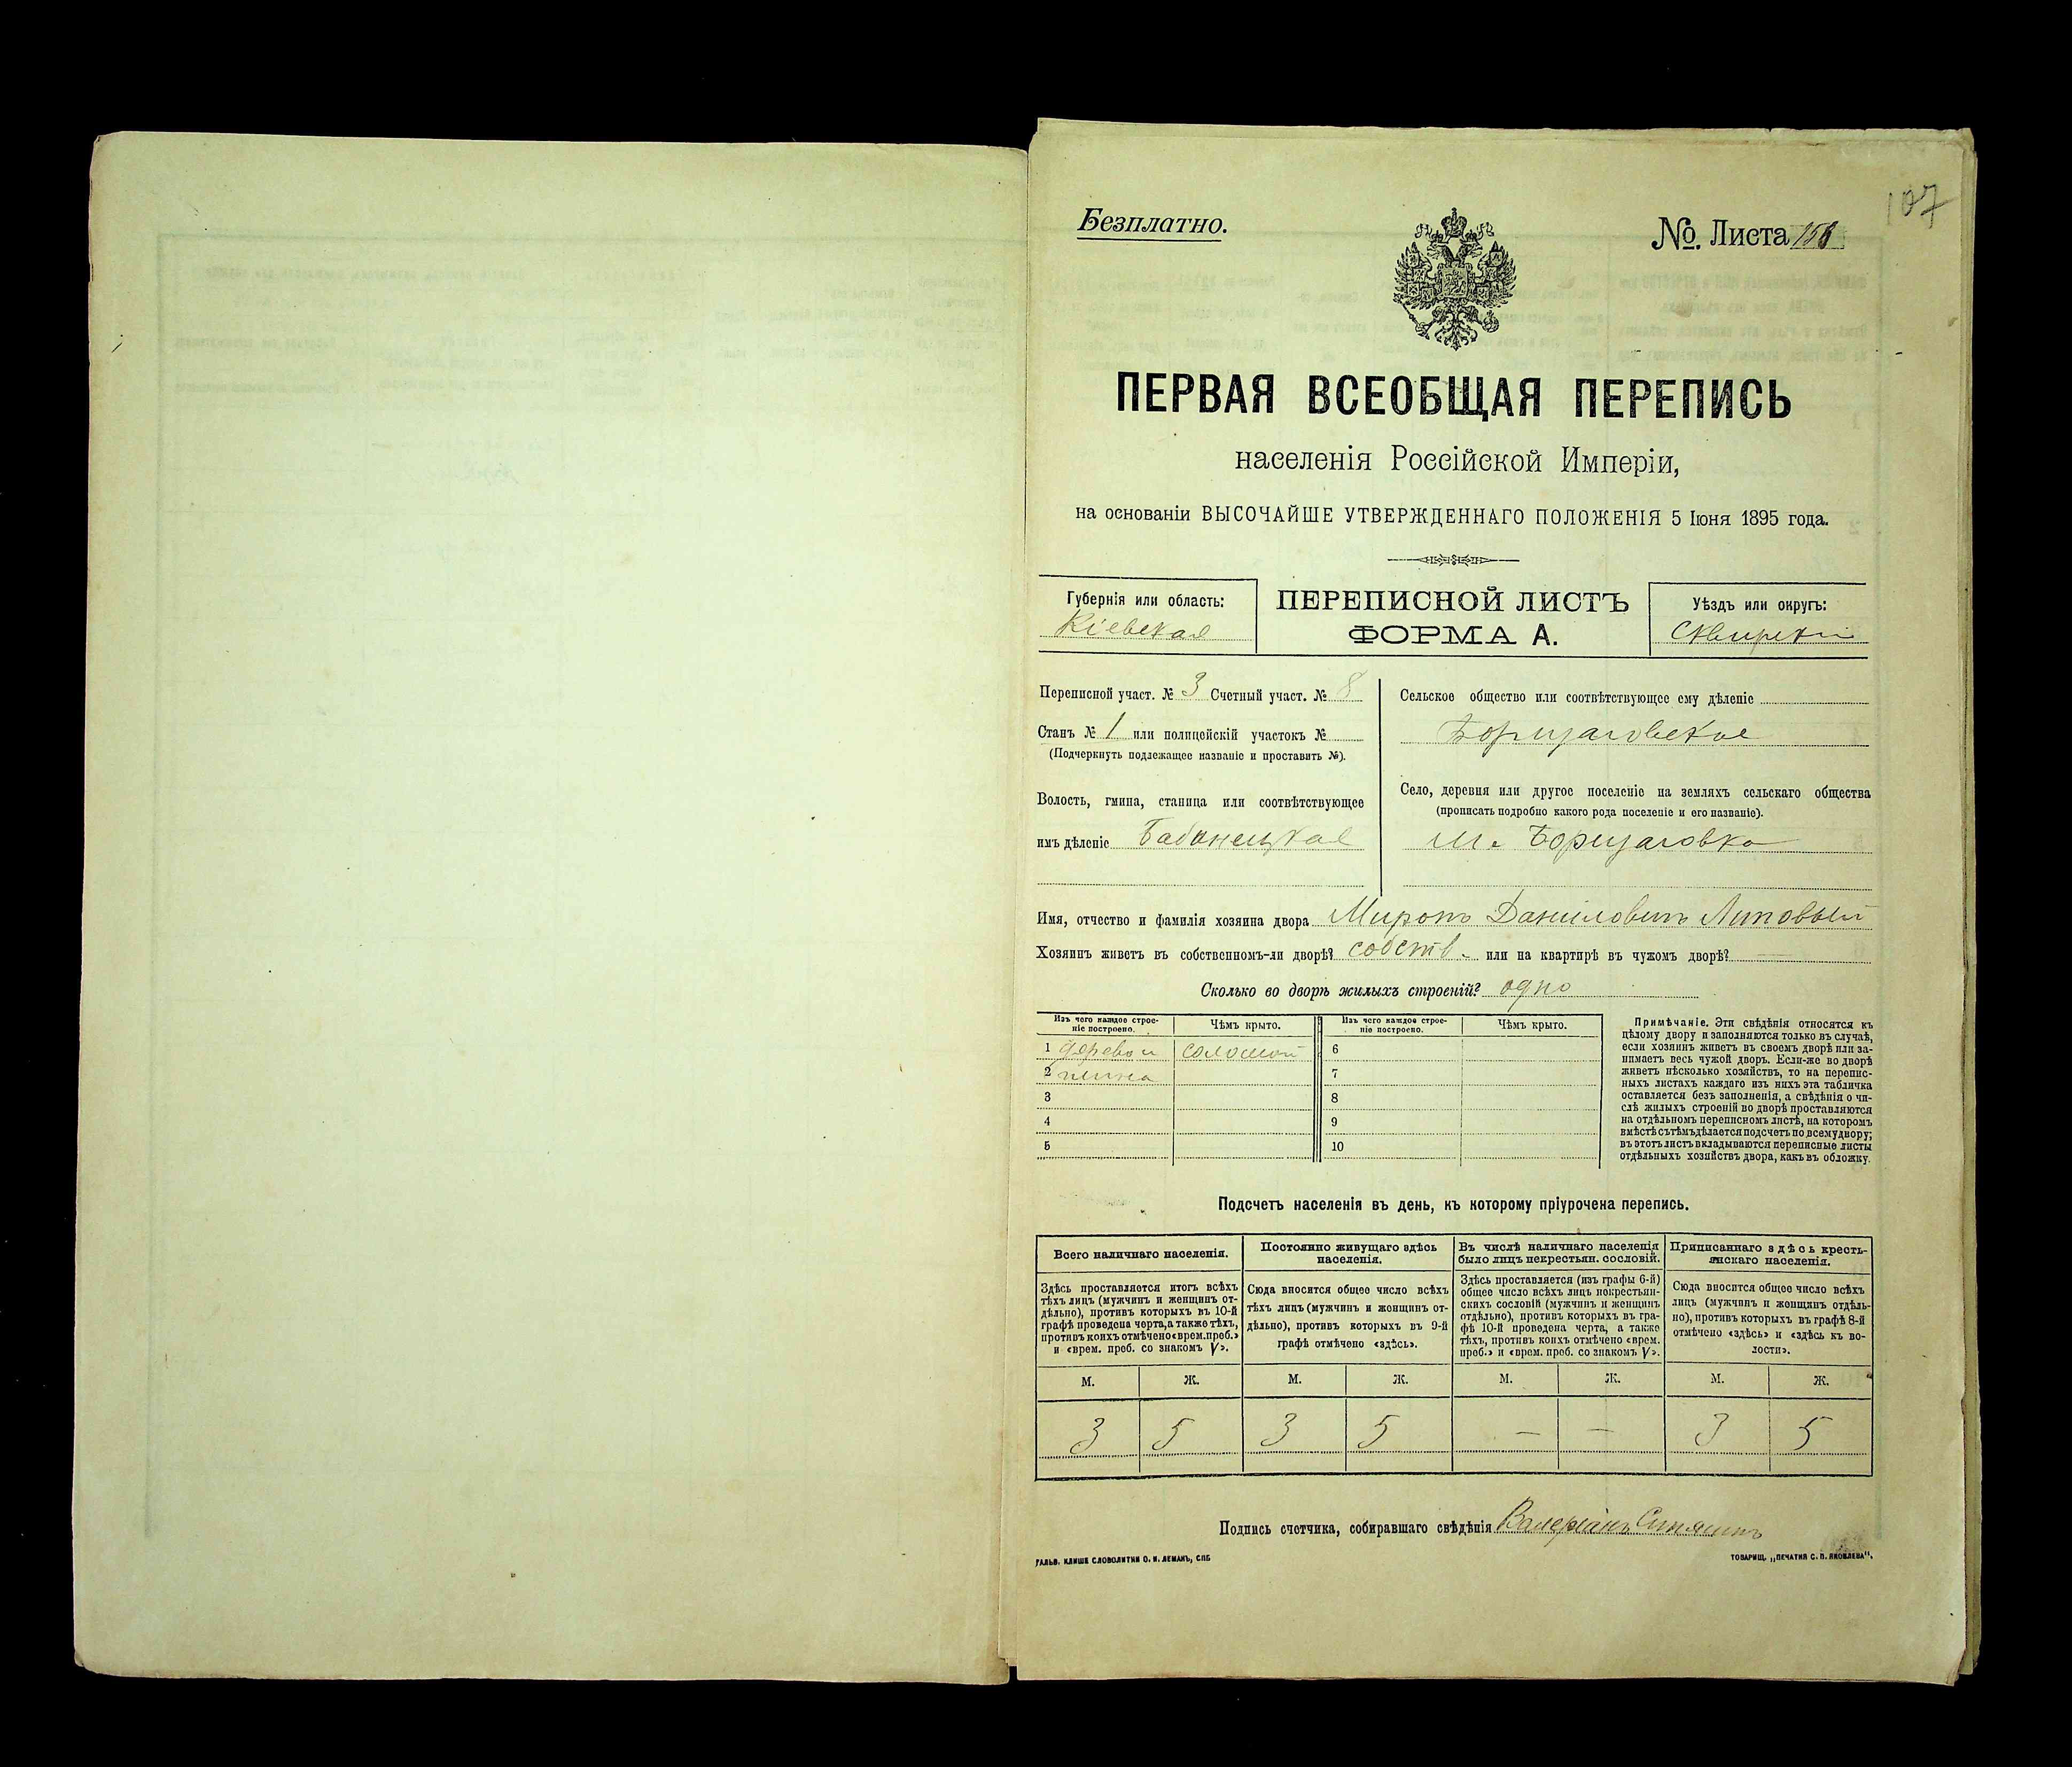 107
Безплатно.
№. Листа
ПЕРВАЯ ВСЕОБЩАЯ ПЕРЕПИСЬ
населенія Россійской Имперіи,
на основаніи ВЫСОЧАЙШЕ УТВЕРЖДЕННАГО ПОЛОЖЕНІЯ 5 Іюня 1895 года.
Губернія или область:
Кіевская
ПЕРЕПИСНОЙ ЛИСТЪ
ФОРМА А.
Уѣздъ или округъ:
Сквирскій
Переписной участ. № 3 Счетный участ. № 8
Станъ № 1 или полицейскій участокъ №
(Подчеркнуть подлежащее названіе и проставить №).
Волость, гмина, станица или соотвѣтствующее
имъ дѣленіе Бабинецкая
Сельское общество или соотвѣтствующее ему дѣленіе
Борщаговское
Село, деревня или другое поселеніе на земляхъ сельскаго общества
(прописать подробно какого рода поселеніе и его названіе).
м. Борщаговка
Имя, отчество и фамилія хозяина двора Миронъ Даниловичъ Липовый
Хозяинъ живетъ въ собственномъ-ли дворѣ? собств. или на квартирѣ въ чужомъ дворѣ? —
Сколько во дворѣ жилыхъ строеній? одно
Изъ чего каждое строе-
ніе построено.
Чѣмъ крыто.
Изъ чего каждое строе-
ніе построено.
Чѣмъ крыто.
1 дерево и соломой 6
2 глина 7
3 8
4 9
5 10
Примѣчаніе. Эти свѣдѣнія относятся къ
цѣлому двору и заполняются только въ случаѣ,
если хозяинъ живетъ въ своемъ дворѣ или за-
нимаетъ весь чужой дворъ. Если-же во дворѣ
живетъ нѣсколько хозяйствъ, то на перепис-
ныхъ листахъ каждаго изъ нихъ эта табличка
оставляется безъ заполненія, а свѣдѣнія о чи-
слѣ жилыхъ строеній во дворѣ проставляются
на отдѣльномъ переписномъ листѣ, на которомъ
вмѣстѣ съ тѣмъ дѣлается подсчетъ по всему двору;
въ этотъ листъ вкладываются переписные листы
отдѣльныхъ хозяйствъ двора, какъ въ обложку.
Подсчетъ населенія въ день, къ которому пріурочена перепись.
Всего наличнаго населенія.
Здѣсь проставляется итогъ всѣхъ
тѣхъ лицъ (мужчинъ и женщинъ от-
дѣльно), противъ которыхъ въ 10-й
графѣ проведена черта, а также тѣхъ,
противъ коихъ отмѣчено «врем. преб.»
и «врем. преб. со знакомъ V».
Постоянно живущаго здѣсь
населенія.
Сюда вносится общее число всѣхъ
тѣхъ лицъ (мужчинъ и женщинъ от-
дѣльно), противъ которыхъ въ 9-й
графѣ отмѣчено «здѣсь».
Въ числѣ наличнаго населенія
было лицъ некрестьян. сословій.
Здѣсь проставляется (изъ графы 6-й)
общее число всѣхъ лицъ некрестьян-
скихъ сословій (мужчинъ и женщинъ
отдѣльно), противъ которыхъ въ гра-
фѣ 10-й проведена черта, а также
тѣхъ, противъ коихъ отмѣчено «врем.
преб.» и «врем. преб. со знакомъ V».
Приписаннаго здѣсь кресть-
янскаго населенія.
Сюда вносится общее число всѣхъ
лицъ (мужчинъ и женщинъ отдѣль-
но), противъ которыхъ въ графѣ 8-й
отмѣчено «здѣсь» и «здѣсь къ во-
лости».
М. Ж. М. Ж. М. Ж. М. Ж.
3 5 3 5 — — 3 5
Подпись счетчика, собиравшаго свѣдѣнія Валеріанъ
ГАЛЬВ. КЛИШЕ СЛОВОЛИТНИ О. И. ЛЕМАНЪ, СПБ
ТОВАРИЩ. „ПЕЧАТНЯ С. П. ЯКОВЛЕВА".